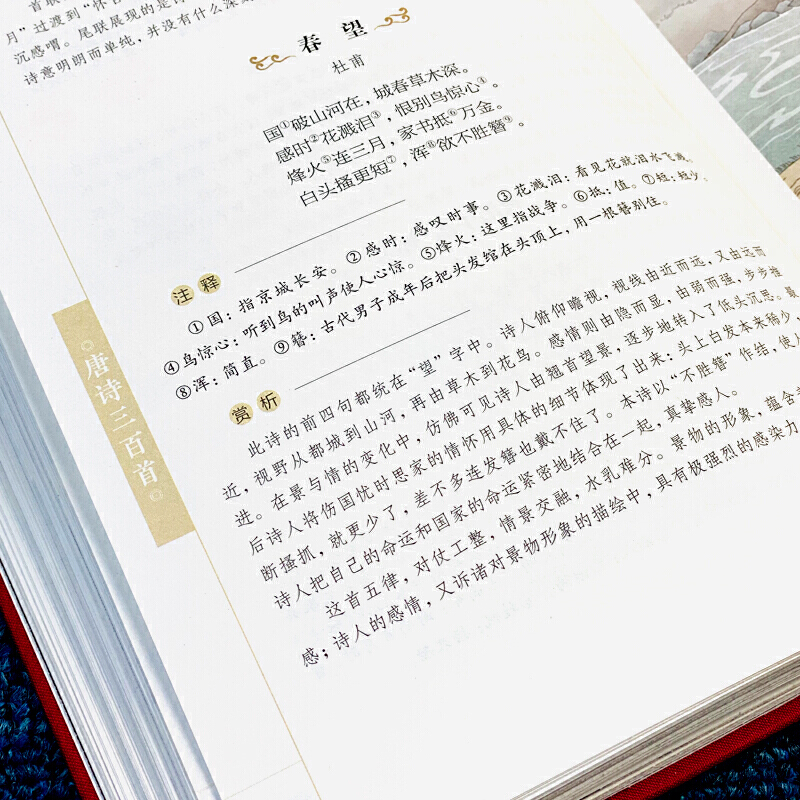 月”过渡到“怀古
沉感喟。尾联展现的是
诗意明朗而单纯，并没有什么深
春望
杜甫
国①破山河在，城春草木深。
感时②花溅泪③，恨别鸟惊心④。
烽火⑤连三月，家书抵⑥万金。
白头搔更短⑦，浑⑧欲不胜簪⑨。
注释
①国：指京城长安。②感时：感叹时事。③花溅泪：看见花就泪水飞溅。
④鸟惊心：听到鸟的叫声使人心惊。⑤烽火：这里指战争。⑥抵：值。⑦短：短少。
⑧浑：简直。⑨簪：古代男子成年后把头发绾在头顶上，用一根簪别住。
赏析
此诗的前四句都统在“望”字中。诗人俯仰瞻视，视线由近而远，又由远而
近，视野从都城到山河，再由草木到花鸟。感情则由隐而显，由弱而强，步步推
进。在景与情的变化中，仿佛可见诗人由翘首望景，逐步地转入了低头沉思。最
后诗人将伤国忧时思家的情怀用具体的细节体现了出来：头上白发本来稀少，
断搔抓，就更少了，差不多连发簪也戴不住了。本诗以“不胜簪”作结，使人
诗人把自己的命运和国家的命运紧密地结合在一起，真挚感人。
这首五律，对仗工整，情景交融，水乳难分。景物的形象，蕴含
感；诗人的感情，又诉诸对景物形象的描绘中，具有极强烈的感染力
唐诗三百首